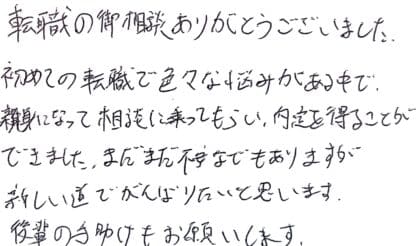 転職の御相談ありがとうございました.
初めての転職で色々な悩みがある中で.
親身になって相談に乗ってもらい,内定を得ることが
できました.まだまだ不安なでもありますが
新しい道でがんばりたいと思います.
後輩の手助けもお願いします.